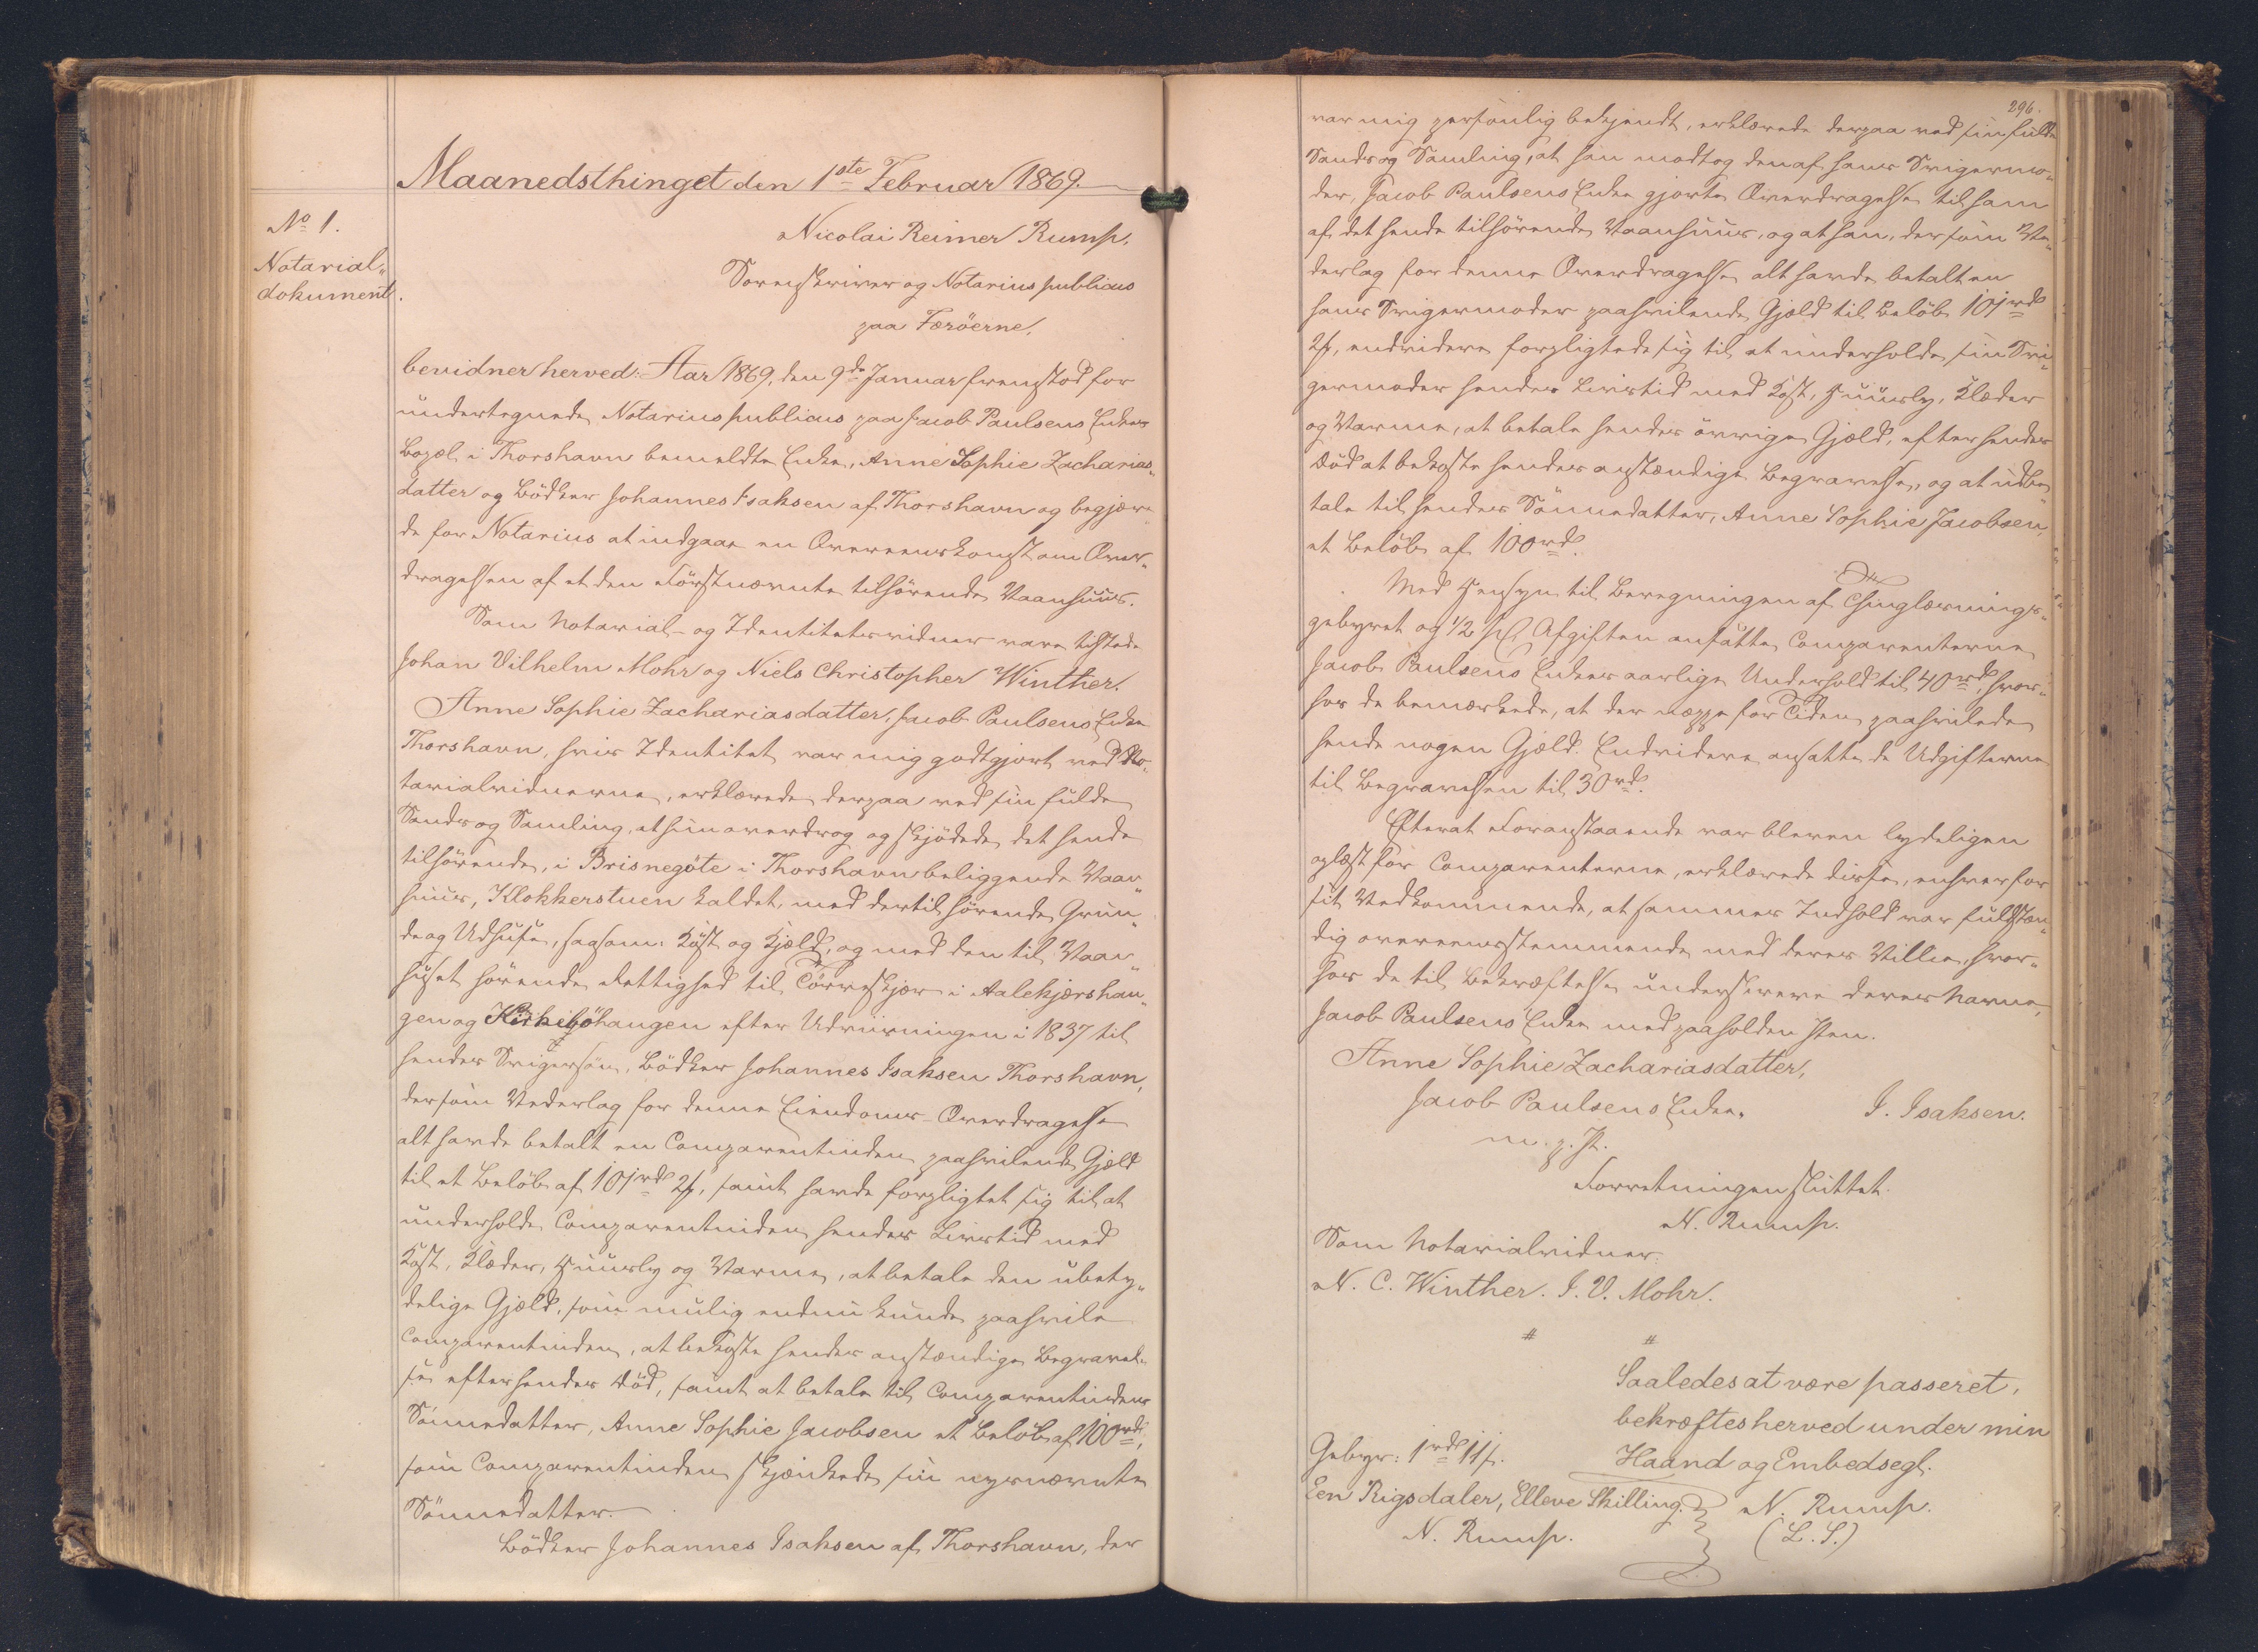 Maanedsthinget den 1ste Februar 1869.
No 1.
Notarial„
dokument.
Nicolai Reimer Rump,
Sorenskriver og Notarius publicus
paa Færöerne,
bevidner herved: Aar 1869, den 9de Januar fremstod for
undertegnede Notarius publicus paa Jacob Paulsens Enkes
Bopæl i Thorshavn bemeldte Enke, Anne Sophie Zacharias„
datter og Bödker Johannes Isaksen af Thorshavn og begjære„
de for Notarius at indgaae en Overeenskomst om Over„
dragelsen af et den Förstnævnte tilhörende Vaanhuus.
Som Notarial- og Identitetsvidner vare tilstede
Johan Vilhelm Mohr og Niels Christopher Winther.
Anne Sophie Zachariasdatter, Jacob Paulsens Enke
Thorshavn, hvis Identitet var mig godtgjort ved No„
tarialvidnerne, erklærede derpaa ved sin fulde
Sands og Samling, at hun overdrog og skjödede det hende
tilhörende, i Brisnegöte i Thorshavn beliggende Vaan„
huus, Klokkerstuen kaldet, med dertil hörende Grun„
de og Udhuse, saasom: Köst og Kjæld, og med den til Vaan„
huset hörende Rettighed til Törveskjær i Aalekjærshau„
gen og haugen efter Udviisningen i 1837 til
hendes Svigersön, Bödker Johannes Isaksen Thorshavn,
der som Vederlag for denne Eiendoms-Overdragelse
alt havde betalt en Comparentinden paahvilende Gjæld
til et Belöb af 101rd 2/, samt havde forpligtet sig til at
underholde Comparentinden hendes Livstid med
Kost, Klæder, Huusly og Varme, at betale den ubety„
delige Gjæld, som mulig endnu kunde paahvile
Comparentinden, at bekoste hendes anstændige Begravel„
se efter hendes Död, samt at betale til Comparentindens
Sönnedatter, Anne Sophie Jacobsen et Belöb af 100rd,
som Comparentinden skjænkede sin nysnævnte
Sönnedatter.
Bödker Johannes Isaksen af Thorshavn, der
296.
var mig personlig bekjendt, erklærede derpaa ved sin fulde
Sands og Samling, at han modtog den af hans Svigermo„
der, Jacob Paulsens Enke gjorte Overdragelse til ham
af det hende tilhörende Vaanhuus, og at han, der som Ve„
derlag for denne Overdragelse alt havde betalt en
hans Svigermoder paahvilende Gjæld til Belöb 101rd
2/, endvidere forpligtede sig til at underholde sin Svi„
germoder hendes Livstid med Kost, Huusly, Klæder
og Varme, at betale hendes övrige Gjæld, efter hendes
Död at bekoste hendes anstændige Begravelse, og at udbe„
tale til hendes Sönnedatter, Anne Sophie Jacobsen,
et Belöb af 100rd.
Med Hensyn til Beregningen af Thinglæsnings„
gebyret og 1/2 pCt Afgiften ansatte Comparenterne
Jacob Paulsens Enkes aarlige Underhold til 40rd, hvor„
hos de bemærkede, at der neppe for Tiden paahvilede
hende nogen Gjæld. Endvidere ansatte de Udgifterne
til Begravelsen til 30rd.
Efterat Foranstaaende var bleven lydeligen
oplæst for Comparenterne, erklærede disse, enhver for
sit Vedkommende, at sammes Indhold var fuldstæn„
dig overeensstemmende med deres Villie, hvor„
hos de til Bekræftelse underskreve deres Navne,
Jacob Paulsens Enke med paaholden Pen.
Anne Sophie Zachariasdatter,
Jacob Paulsens Enke. J. Isaksen.
m. p. P.
Forretningen sluttet.
N. Rump.
Som Notarialvidner:
N. C. Winther. J. V. Mohr.
Saaledes at være passeret,
bekræftes herved under min
Haand og Embedsegl.
Gebyr: 1rd 11/.
Een Rigsdaler, Elleve Skilling. N. Rump.
N. Rump. (L. S.)